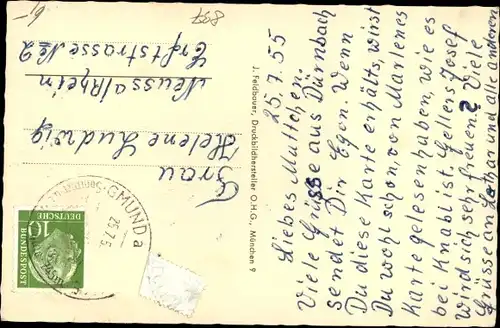 25.7.55
Liebes Muttchen.
Viele Grüsse aus Dürnbach
sendet Dir Egon. Wenn
Du diese Karte erhälts, wirst
Du wohl schon, von Marlenes
Karte gelesen haben, wie es
bei Knabl ist. Gellens Josef
wird sich sehr freuen? Viele
Grüsse an Lothar und alle anderen
J. Feldbauer, Druckbildhersteller O.H.G., München 9
Frau
Helene Ludwig
Neuss a/Rhein
Erftstrasse No 2
GMUND a
25.7.5
10
DEUTSCHE
BUNDESPOST